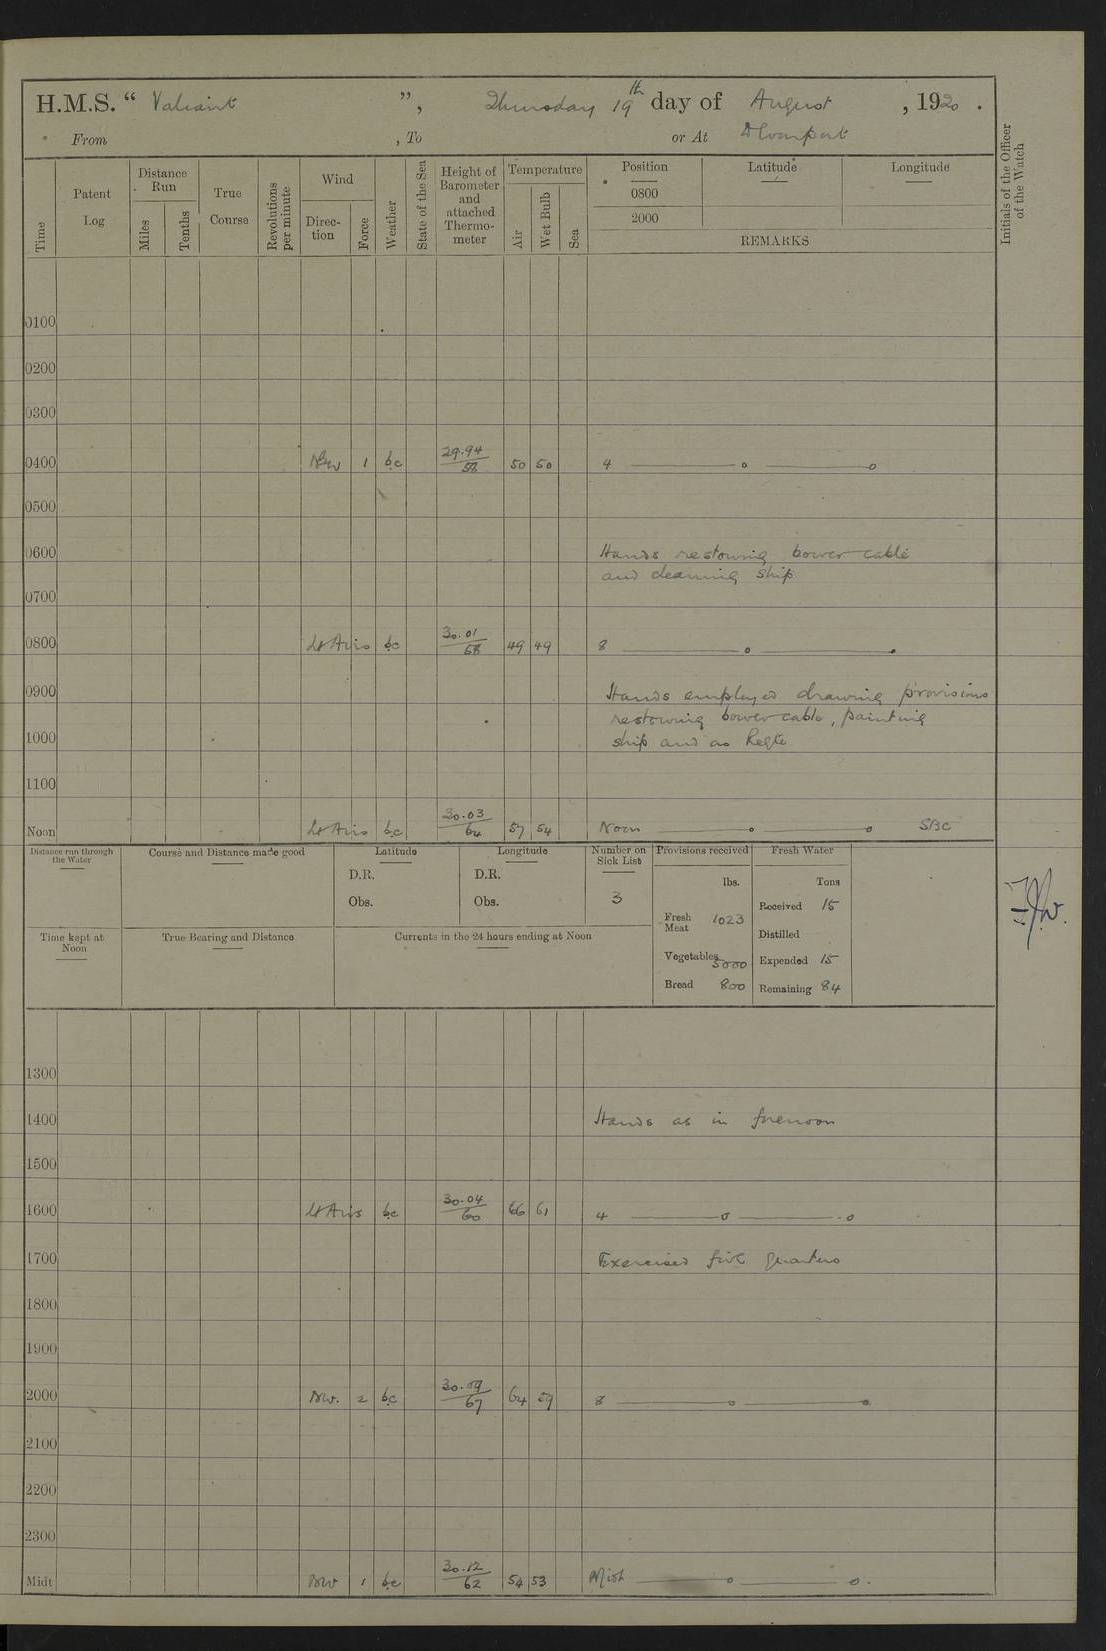 H.M.S. “ Valiant ”, Thursday 19th day of August , 1920 .
From , To or At Devonport
Time
Patent Log
Distance Run
Miles
Tenths
True Course
Revolutions per minute
Wind
Direc-tion
Force
Weather
State of the Sea
Height of Barometer and attached Thermo-meter
Temperature
Air
Wet Bulb
Sea
Position
0800
2000
Latitude
Longitude
REMARKS
Initials of the Officer of the Watch
0100
0200
0300
0400 1 bc 29.94/58 50 50 4
0500
0600 Hands restowing bower cable
and cleaning ship
0700
0800 Lt Airs bc 30.01/58 49 49 8
0900 Hands employed drawing provisions
restowing bower cable, painting
1000 ship and as Reqte
1100
Noon Lt Airs bc 30.03/64 57 54 Noon SBC
Distance run through the Water
Course and Distance made good
Latitude
D.R.
Obs.
Longitude
D.R.
Obs.
Number on Sick List
3
Provisions received
lbs.
Fresh Meat 1023
Vegetables 5000
Bread 800
Fresh Water
Tons
Received 15
Distilled
Expended 15
Remaining 84
Time kept at Noon
True Bearing and Distance
Currents in the 24 hours ending at Noon
1300
1400 Hands as in forenoon
1500
1600 Lt Airs bc 30.04/60 66 61 4
1700 Exercised fire quarters
1800
1900
2000 NW. 2 bc 30.09/67 64 59 8
2100
2200
2300
Midt NW 1 bc 30.12/62 54 53 Midt